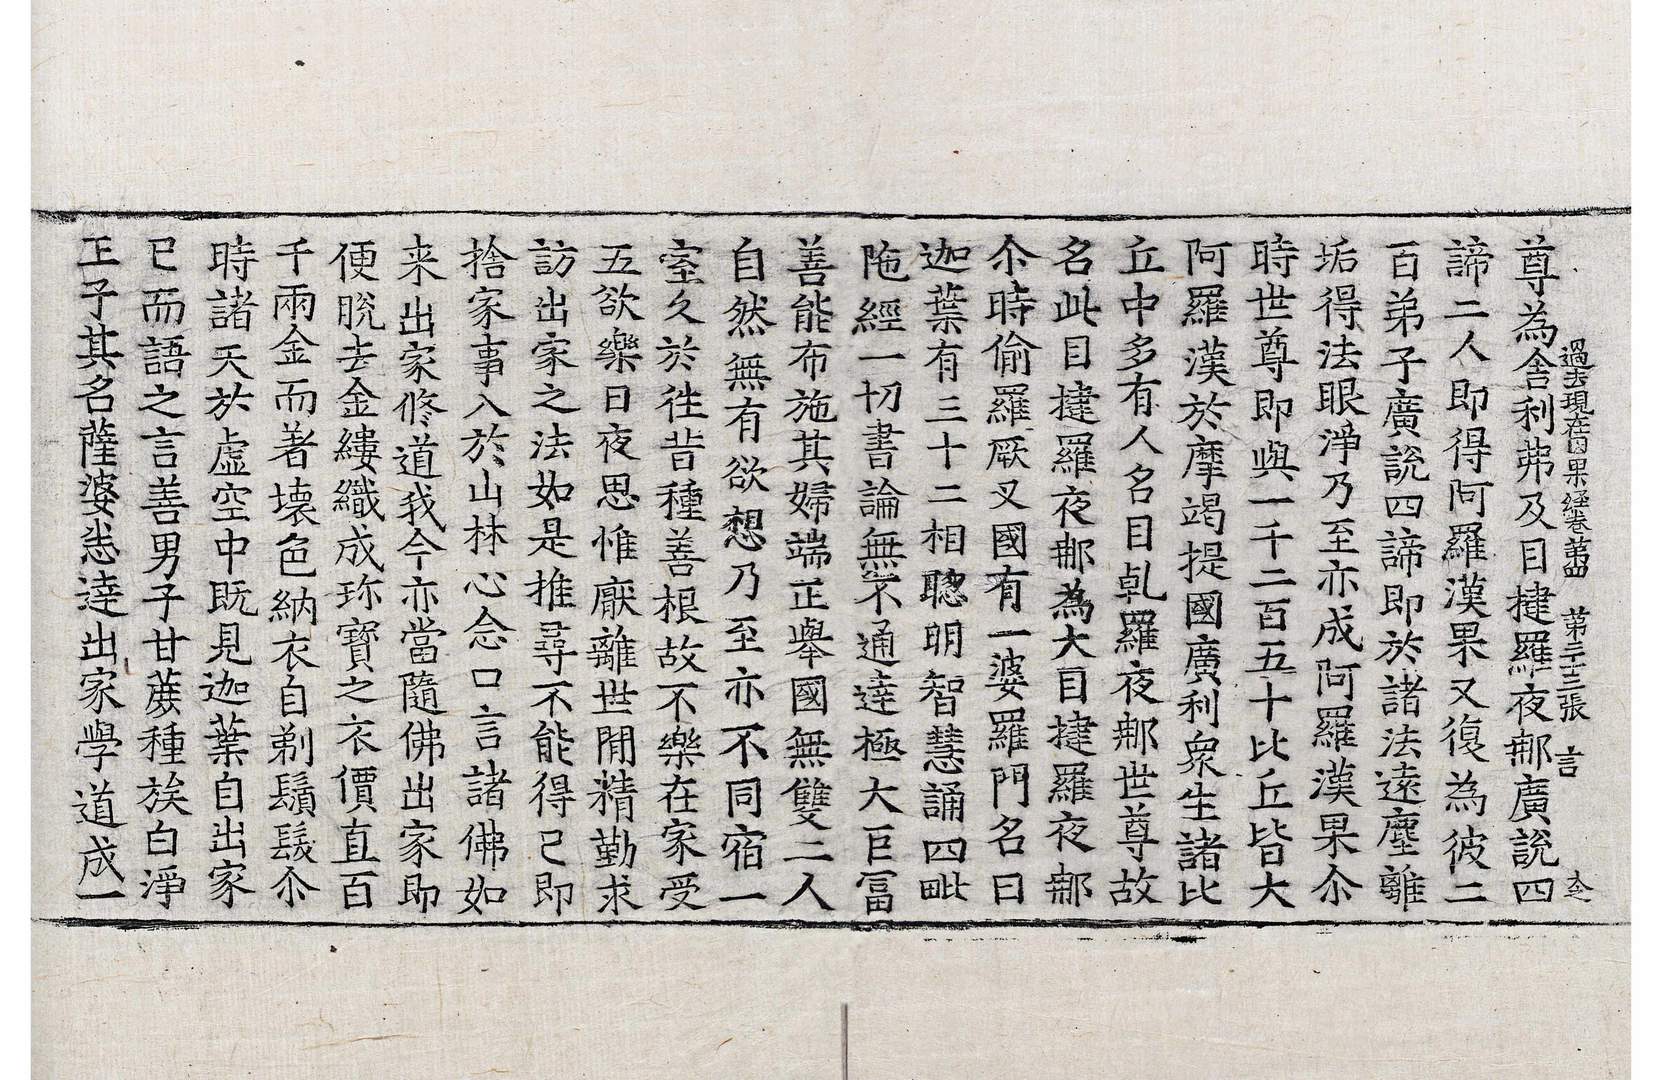 過去現在因果經卷第四 第二十三張 言
尊為舍利弗及目揵羅夜那廣說四
諦二人即得阿羅漢果又復為彼二
百弟子廣說四諦即於諸法遠塵離
垢得法眼淨乃至亦成阿羅漢果尒
時世尊即與一千二百五十比丘皆大
阿羅漢於摩竭提國廣利衆生諸比
丘中多有人名目乹羅夜那世尊故
名此目揵羅夜那為大目揵羅夜那
尒時偷羅厥叉國有一婆羅門名曰
迦葉有三十二相聰明智慧誦四毗
陁經一切書論無不通達極大巨冨
善能布施其婦端正舉國無雙二人
自然無有欲想乃至亦不同宿一
室久於徃昔種善根故不樂在家受
五欲樂日夜思惟厭離世閒精勤求
訪出家之法如是推尋不能得已即
捨家事入於山林心念口言諸佛如
来出家修道我今亦當隨佛出家即
便脫去金縷織成珎寶之衣價直百
千兩金而著壞色納衣自剃鬚髮尒
時諸天於虛空中既見迦葉自出家
已而語之言善男子甘蔗種族白淨
王子其名薩婆悉達出家學道成一